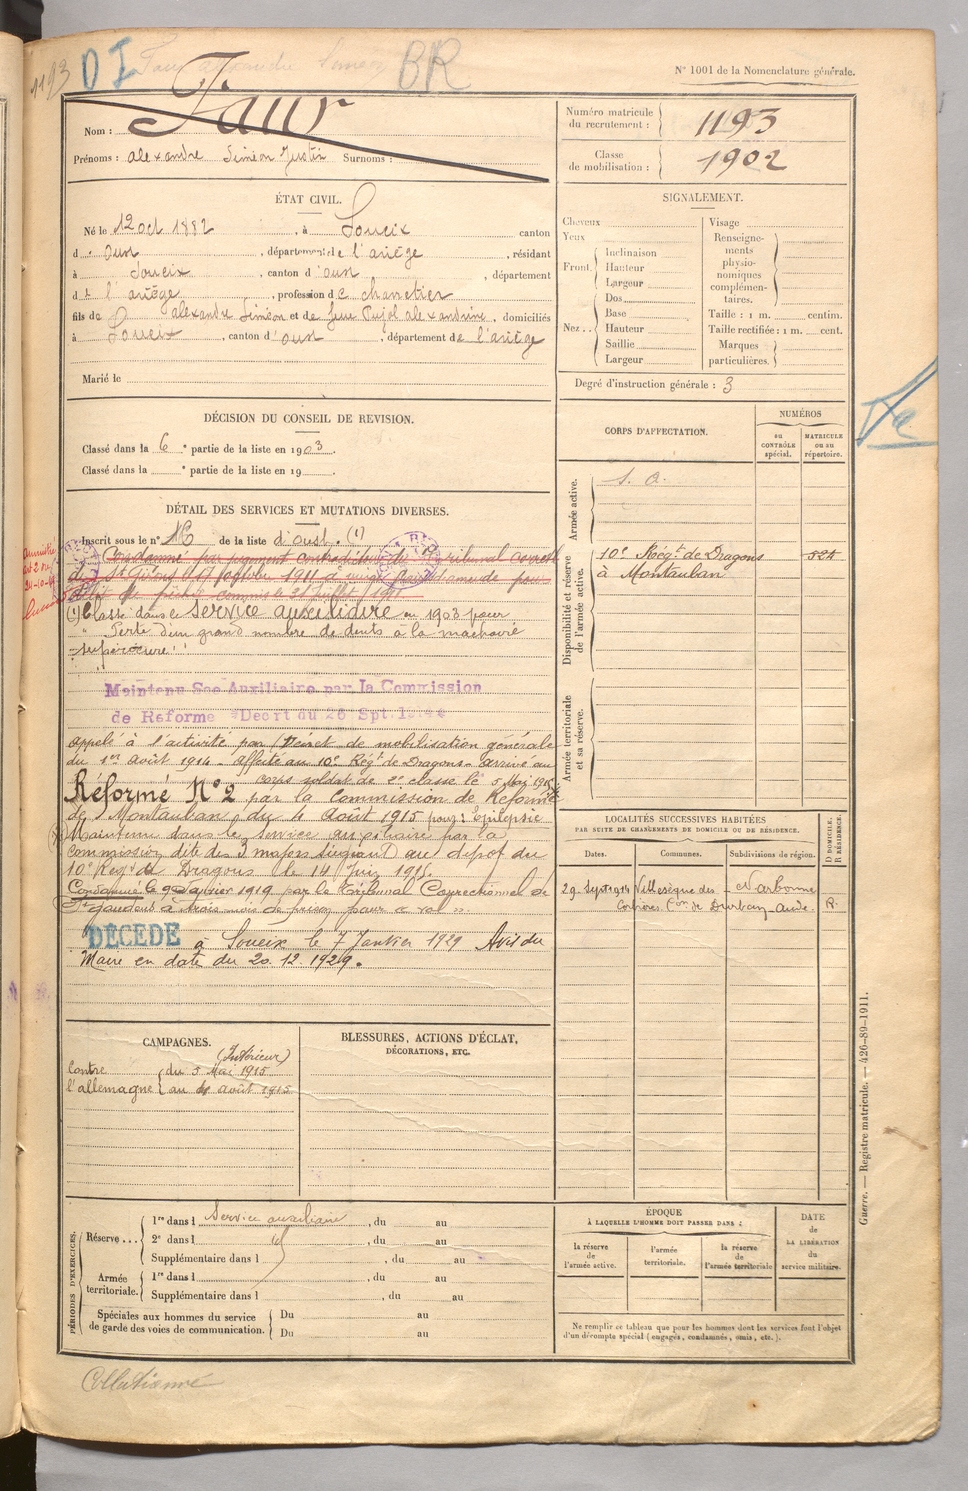 1193 DI BR
N° 1001 de la Nomenclature générale.
Nom : Faur
Prénoms : alexandre Siméon Justin Surnoms :
Numéro matricule du recrutement : 1193
Classe de mobilisation : 1902
ÉTAT CIVIL.
Né le 12 oct 1882, à Soueix canton
d'Oust, département de l'ariège, résidant
à Soueix, canton d'oust, département
de l'ariège, profession de charretier
fils de alexandre Siméon et de feue Pujol alexandrine, domiciliés
à Soueix, canton d'oust, département de l'ariège
Marié le
SIGNALEMENT.
Cheveux
Yeux
Front. Inclinaison
Hauteur
Largeur
Nez.. Dos
Base
Hauteur
Saillie
Largeur
Visage
Renseignements physionomiques complémentaires.
Taille : 1 m. centim.
Taille rectifiée : 1 m. cent.
Marques particulières.
Degré d'instruction générale : 3
DÉCISION DU CONSEIL DE REVISION.
Classé dans la 6e partie de la liste en 1903.
Classé dans la e partie de la liste en 19
CORPS D'AFFECTATION.
NUMÉROS
au CONTRÔLE spécial.
MATRICULE ou au répertoire.
Armée active.
S. A.
Disponibilité et réserve de l'armée active.
10e Régt de Dragons 524
à Montauban
Armée territoriale et sa réserve.
DÉTAIL DES SERVICES ET MUTATIONS DIVERSES.
Inscrit sous le n° de la liste d'oust. (1)
Condamné par jugement contradictoire du tribunal correct
de St Girons le octobre 1911 à vingt francs d'amende pour
délit de pêche commis le 21 juillet 1911
(1) Classé dans le service auxiliaire en 1903 pour
" Perte d'un grand nombre de dents à la machoire
supérieure"
Maintenu Sce Auxiliaire par la Commission
de Reforme Décrt du 26 Spt.
appelé à l'activité par Décret de mobilisation générale
du 1er août 1914. Affecté au 10e Régt de Dragons. arrivé au
corps soldat de 2e classe le 5 Mai 1915
Réformé N°2 par la Commission de Réforme
de Montauban du 4 Août 1915 pour : Epilepsie
Maintenu dans le service auxiliaire par la
commission dite des 3 majors siégeant au dépôt du
10e Régt de Dragons le 14 Juin 1915.
Condamné le 9 Janvier 1919 par le Tribunal Correctionnel de
St gaudens à trois mois de prison pour « vol ».
DÉCÉDÉ à Soueix le 7 Janvier 1929 Avis du
Maire en date du 20.12.1929.
LOCALITÉS SUCCESSIVES HABITÉES
PAR SUITE DE CHANGEMENTS DE DOMICILE OU DE RÉSIDENCE.
Dates. Communes. Subdivisions de région. D DOMICILE. R RÉSIDENCE.
29 Sept 1914 Villesèque des Narbonne
Corbières. Con de Durban Aude. R.
CAMPAGNES.
(Intérieur)
Contre du 5 Mai 1915
l'allemagne au 4 août 1915
BLESSURES, ACTIONS D'ÉCLAT,
DÉCORATIONS, ETC.
PÉRIODES D'EXERCICES.
Réserve... 1re dans l Service auxiliaire, du au
2e dans l , du au
Supplémentaire dans l , du au
Armée territoriale. 1re dans l , du au
Supplémentaire dans l , du au
Spéciales aux hommes du service de garde des voies de communication. Du au
Du au
ÉPOQUE
À LAQUELLE L'HOMME DOIT PASSER DANS :
la réserve de l'armée active.
l'armée territoriale.
la réserve de l'armée territoriale
DATE DE LA LIBÉRATION du service militaire.
Ne remplir ce tableau que pour les hommes dont les services font l'objet
d'un décompte spécial (engagés, condamnés, omis, etc.).
Guerre. — Registre matricule. — 426-89-1911.
Collationné